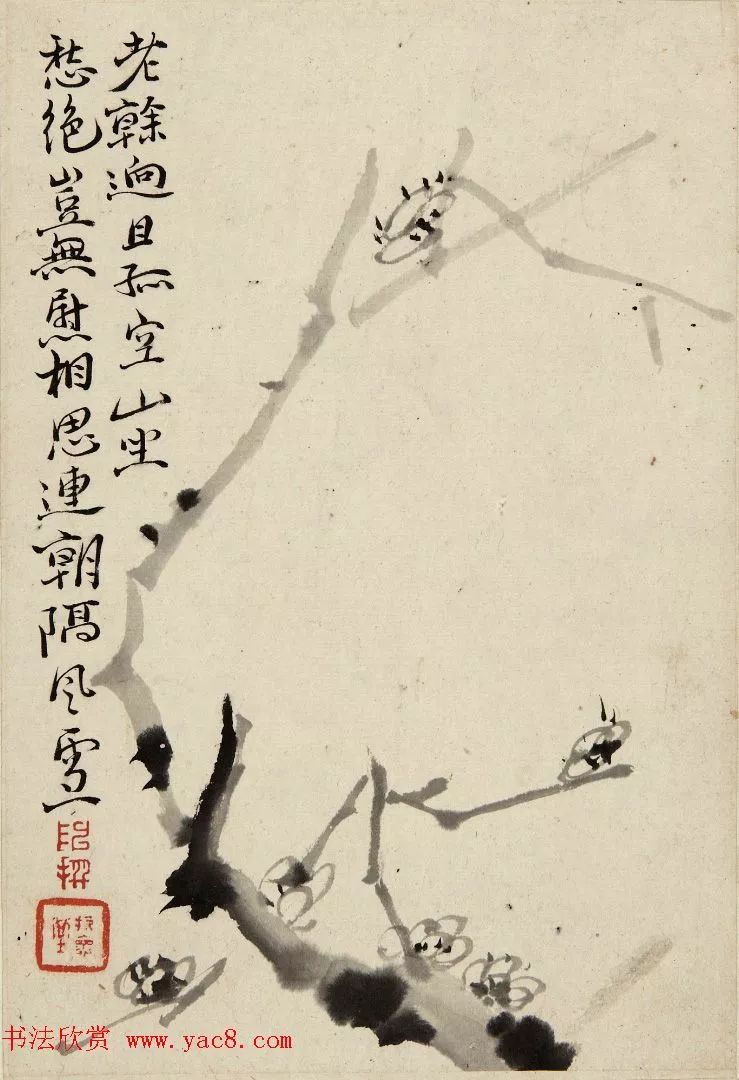 老榦迥且孤空山坐
愁絶豈無慰相思連朝隔風雪
书法欣赏 www.yac8.com